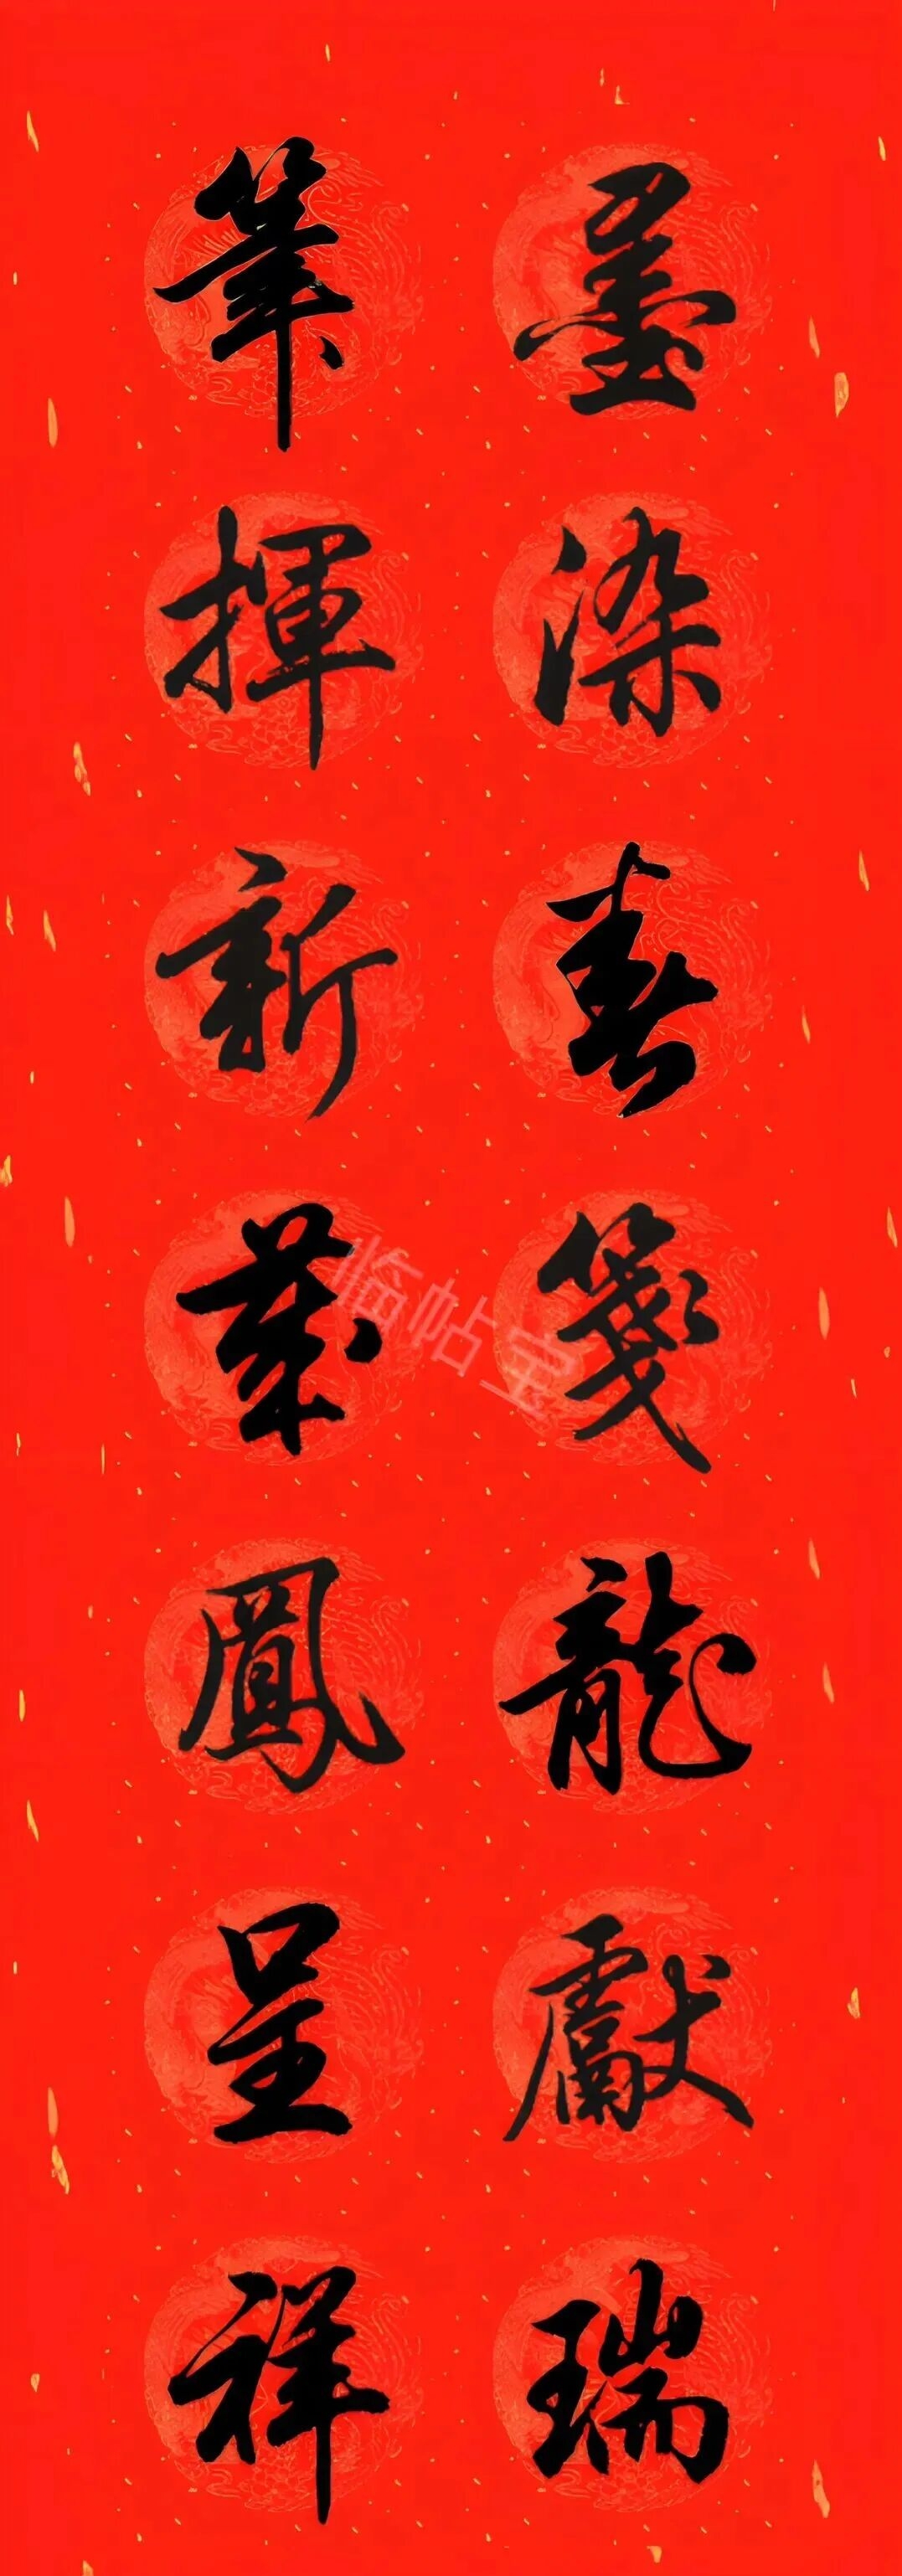 墨染春箋龍獻瑞
筆揮新葉鳳呈祥
临帖宝